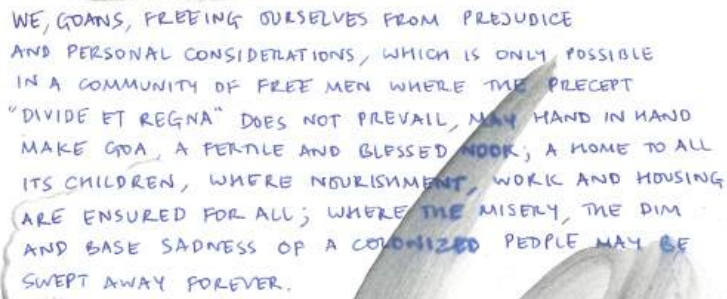 WE, GOANS, FREEING OURSELVES FROM PREJUDICE
AND PERSONAL CONSIDERATIONS, WHICH IS ONLY POSSIBLE
IN A COMMUNITY OF FREE MEN WHERE THE PRECEPT
"DIVIDE ET REGNA" DOES NOT PREVAIL, MAY HAND IN HAND
MAKE GOA, A FERTILE AND BLESSED NOOK; A HOME TO ALL
ITS CHILDREN, WHERE NOURISHMENT, WORK AND HOUSING
ARE ENSURED FOR ALL; WHERE THE MISERY, THE DIM
AND BASE SADNESS OF A COLONIZED PEOPLE MAY BE
SWEPT AWAY FOREVER.